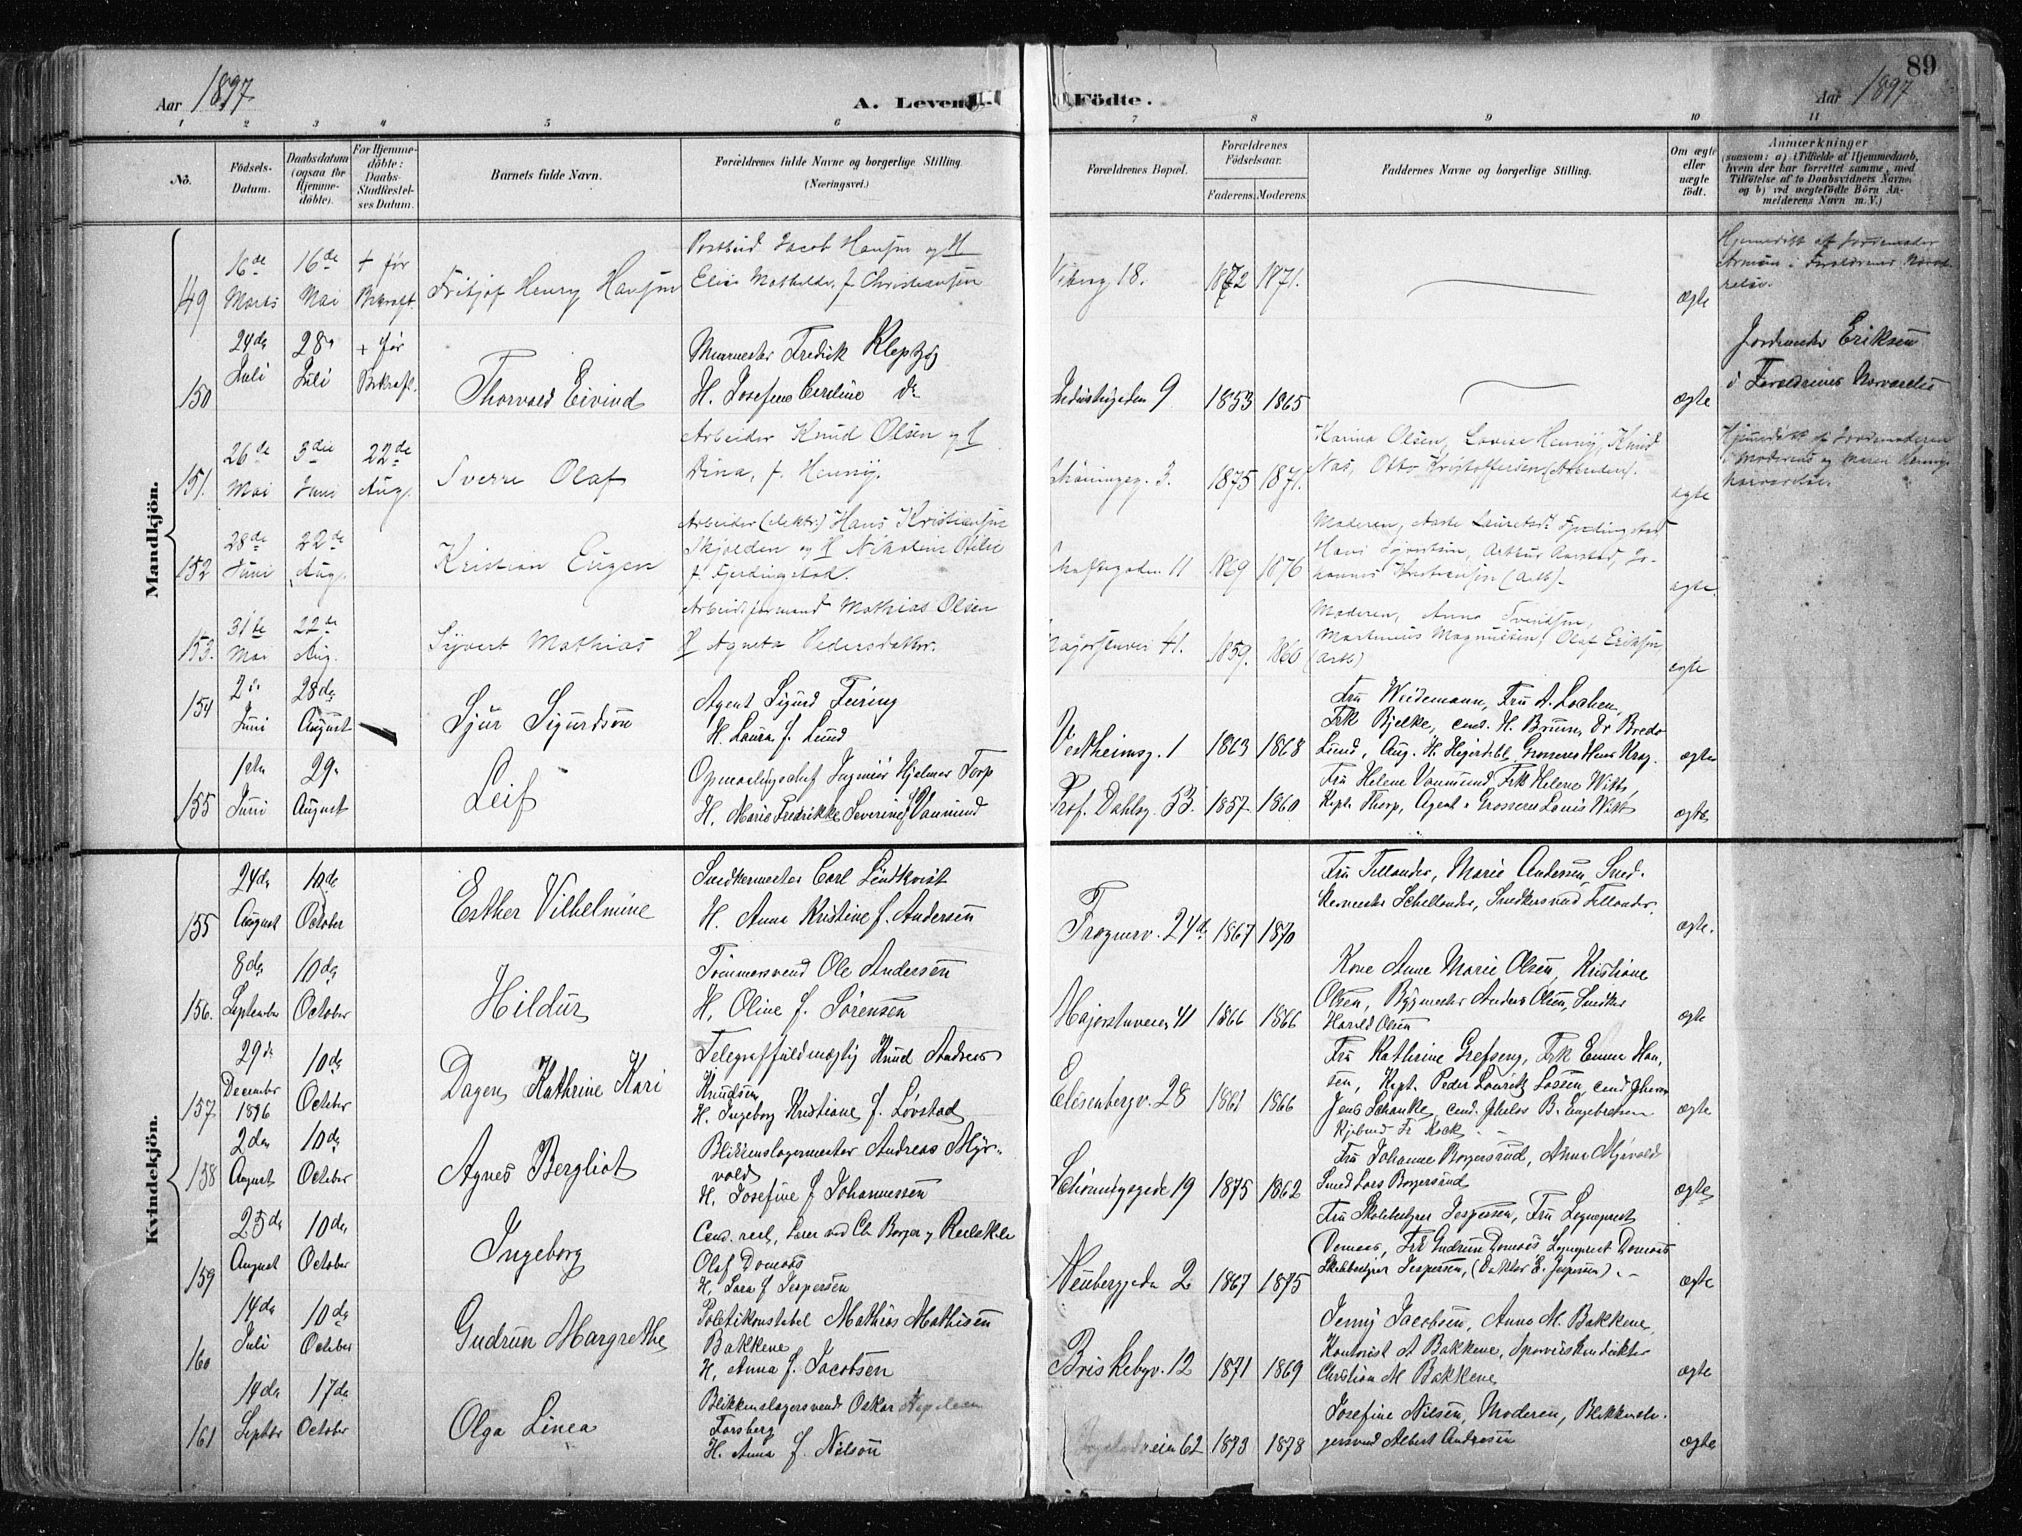 89
Aar 1897
A. Levende
Födte.
Aar 1897
1 2 3 4 5 6 7 8 9 10 11
No.
Födsels-
Datum.
Daabsdatum
(ogsaa for
Hjemme-
döbte).
For Hjemme-
döbte:
Daabs-
Stadfæstel-
ses Datum.
Barnets fulde Navn.
Forældrenes fulde Navne og borgerlige Stilling.
(Næringsvei.)
Forældrenes Bopæl.
Forældrenes
Födselsaar.
Faderens.
Moderens.
Faddernes Navne og borgerlige Stilling.
Om ægte
eller
uægte
födt.
Anmærkninger
(saasom: a) i Tilfælde af Hjemmedaab,
hvem der har forrettet samme, med
Tilföielse af to Daabsvidners Navne;
og b) ved uægtefödte Börn An-
melderens Navn m.V.)
Mandkjön.
149
16de
Marts
16de
Mai
+ før
Bekræft.
Fritjof Henry Hansen
Postbud Jacob Hansen og H
Elise Mathilde, f. Christiansen
Viberg 18.
1872
1871.
ægte
Hjemmedøbt af Jordemoder
i Forældrenes Nærvæ-
relse.
150
24de
Juli
28de
Juli
+ før
Bekræft.
Thorvald Eivind
Murmester Fredrik
H. Josefine
Industrigaden 9
1853
1865
ægte
Jordmoder Eriksen
i Forældrenes Nærværelse
151.
26de
Mai
3die
Juni
22de
Aug.
Sverre Olaf
Arbeider Knud Olsen og H
Dina, f. Henny.
Schøningsg. 3.
1875
1871.
Karina Olsen, Lovise Henny, Knud
Nas, Otto Kristoffersen (Arbeidere).
ægte
Hjemdøbt af Jordemoderen
i Moderens og Maren Hennys
nærværelse.
152
28de
Juni
22de
Aug.
Kristian Eugen
Arbeider (elektr.) Hans Kristiansen
Skjolden og H Nikoline Otilie
f. Fjerdingstad.
11
1869
1876
Moderen, Fjerdingstad
Hans Syvertsen, Arthur Aarstad, Jo-
hannes Kristiansen (Arb).
ægte.
153.
31te
Mai
22de
Aug.
Syvert Mathias
Arbeidsformand Mathias Olsen
H Agneta Pedersdatter.
Majorstuvei 41.
1859.
1860
Moderen, Anna Svendsen,
Martinius Magnussen, Olaf Eriksen
(Arb)
ægte
154
2de
Juni
28de
August
Sjur Sigurdsøn
Agent Sigurd Feiring
H. Laura f. Lund
Vestheimsg. 1
1863
1868
Fru Weidemann, Fru A. Lochen,
Frk Bjelke, cand. H. Bruun, Dr Bredo
Lund, Aug. H. Grosserer Hans Krag.
ægte
155
1ste
Juni
29de
August
Leif
Opmaalingschef Ingeniør Hjalmar Torp
H. Marie Fredrikke Severine f. Vanmund
Prof. Dahlsg. 53.
1857.
1860
Fru Helene Vanmund, Frk Helene Witt,
Kapt. Thorp, Agent Grosserer Louis Witt
ægte
Kvindekjön.
155
24de
August
10de
October
Esther Vilhelmine
Snedkermester Carl Lindkvist
H. Anna Kristine f. Andersen
Frognerv. 24d
1867
1870
Fru Tillander, Marie Andersen, Sned-
kermester Schellander, Snedkersvend Tillander.
ægte.
156.
8de
September
10de
October
Hildur
Tømmersvend Ole Andersen
H. Oline f. Sørensen
Majorstuveien 41
1866
1866
Kone Anne Marie Olsen, Kristiane
Olsen, Bygmester Anders Olsen, Snedker
Harald Olsen
ægte
157
29de
December
1896
10de
October
Dagny Kathrine Kari
Telegraffuldmægtig Knud Andreas
Knudsen
H. Ingeborg Kristiane f. Løvstad
Elisenbergv. 28
1861
1866
Fru Kathrine Grefseng, Frk Emma Han-
sen, Kapt. Peder Lauritz Lassen, cand pharm
Jens Schanke, cand. philos B. Engebretsen
Kjøbmd Fr Kock
ægte
158
2den
August
10de
October
Agnes Bergliot
Blikkenslagermester Andreas Myr-
vold
H. Josefine f Johannessen
Schøningsgade 19
1875
1862
Fru Johanne Borgersrud, Anna Myrvold
Smed Lars Borgersrud
ægte
159
25de
August
10de
October
Ingeborg
Cand. real, Lærer ved Ch Borger og Realskole
Olaf Domaas
H. Lara f Jespersen
Neuberggaden 2
1867
1875
Fru Skibbedyer Jespersen, Fru Lægeprest
Domaas, Frk Gudrun Domaas, Domaas
Jespersen, (Doktor E. Jespersen).
ægte
160
14de
Juli
10de
October
Gudrun Margrethe
Politikonstabel Mathias Mathisen
Bakkene
H. Anna f. Jacobsen
Briskebyv. 12
1871
1869
Jenny Jacobsen, Anna M. Bakkene,
Kontorist A Bakkene, Sporveiskonduktør
Christian M Bakkene
ægte
161
14de
Septbr
17de
October
Olga Linea
Blikkenslagersvend Oskar Napoleon
Forsberg
H. Anna f. Nilson
62
1873
1878
Josefine Nilsen, Moderen, Blikkensla-
gersvend Albert Andresen
ægte